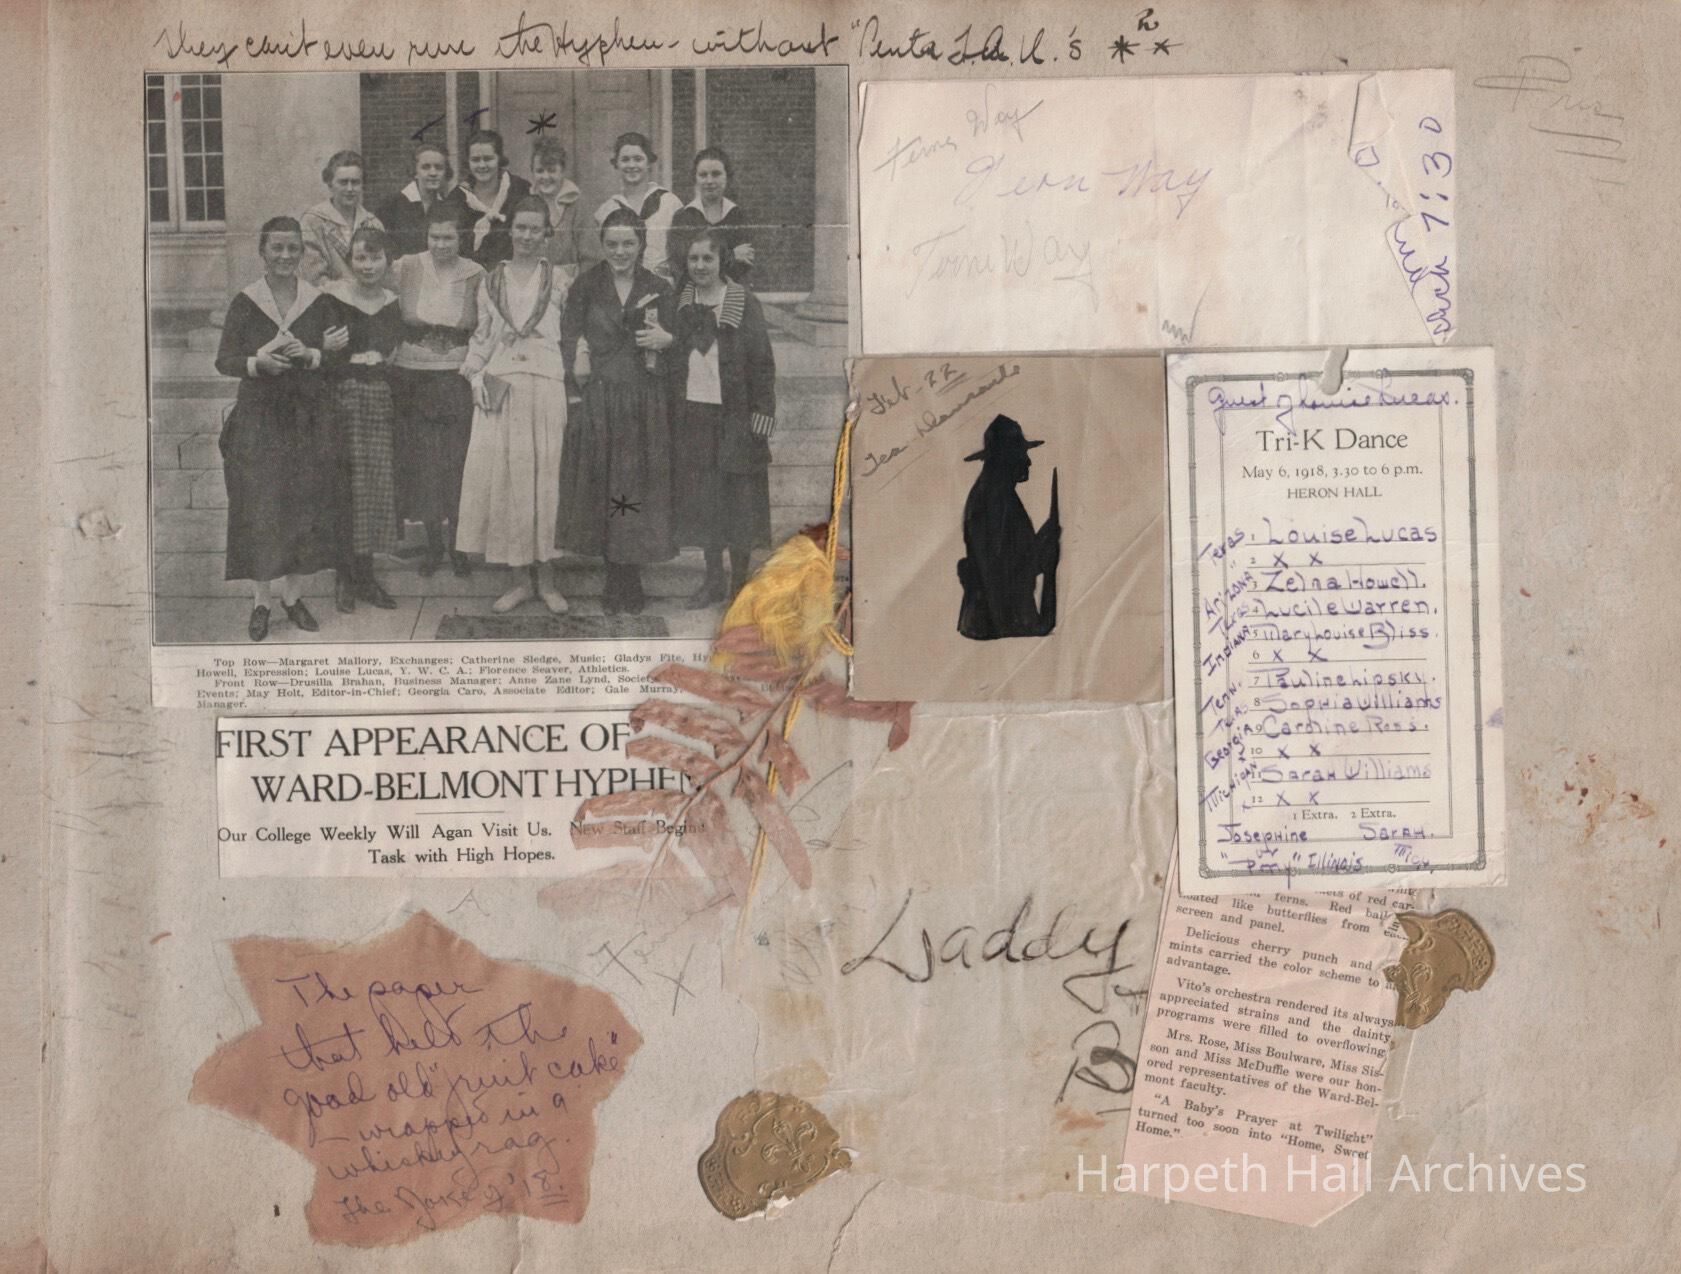 They can't even run the Hyphen - without "Penta T.A.U.'s **
Top Row—Margaret Mallory, Exchanges; Catherine Sledge, Music; Gladys Fite, Hy
Howell, Expression; Louise Lucas, Y. W. C. A.; Florence Seaver, Athletics.
Front Row—Drusilla Brahan, Business Manager; Anne Zane Lynd, Society
Events; May Holt, Editor-in-Chief; Georgia Caro, Associate Editor; Gale Murray,
Manager.
FIRST APPEARANCE OF
WARD-BELMONT HYPHEN
Our College Weekly Will Agan Visit Us. New Staff Begins
Task with High Hopes.
The paper
that held the
good old "fruit cake"
- wrapped in a
whiskey rag.
The Joke of '18.
Fern Way
Fern Way
Way
7:30
Feb - 22
Tea Dansante
Daddy
Guest of Louise Lucas.
Tri-K Dance
May 6, 1918, 3.30 to 6 p.m.
HERON HALL
Texas 1 Louise Lucas
" 2 x x
Arizona 3 Zelna Howell.
Texas 4 Lucile Warren.
Indiana 5 Mary Louise Bliss.
6 x x
Tenn. 7 Pauline Lipsky.
Texas 8 Sophia Williams
Georgia 9 Caroline Ross.
10 x x
Michigan 11 Sarah Williams
x 12 x x
1 Extra. 2 Extra.
Josephine Sarah.
or
"Pony" Illinois Mich.
ferns. Red
like butterflies from
screen and panel.
Delicious cherry punch and
mints carried the color scheme to
advantage.
Vito's orchestra rendered its always
appreciated strains and the dainty
programs were filled to overflowing.
Mrs. Rose, Miss Boulware, Miss Sis-
son and Miss McDuffie were our hon-
ored representatives of the Ward-Bel-
mont faculty.
"A Baby's Prayer at Twilight"
turned too soon into "Home, Sweet
Home."
Harpeth Hall Archives